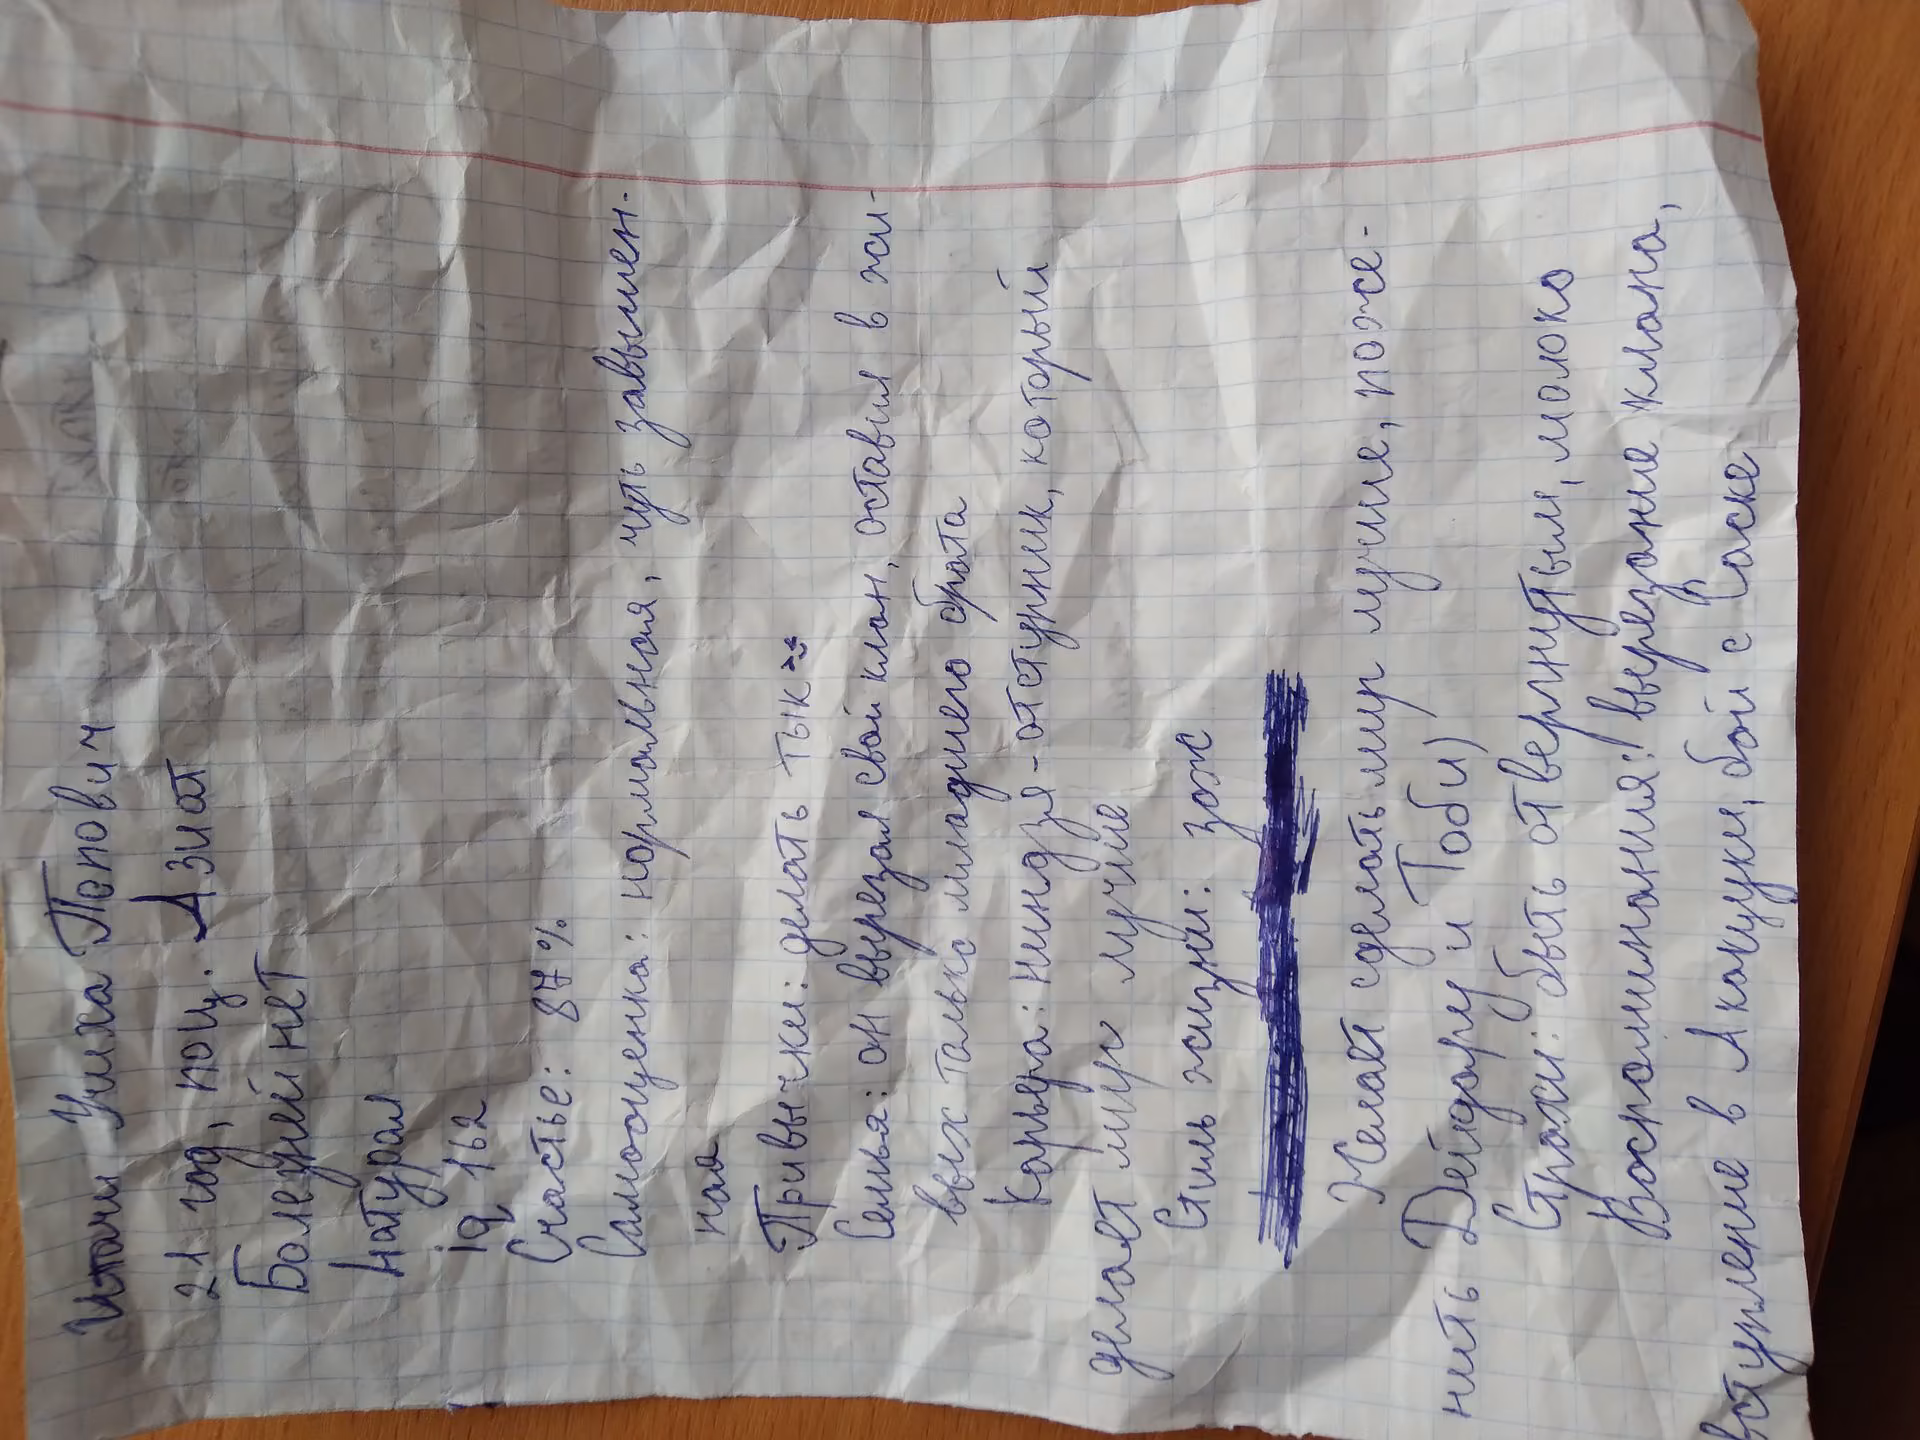 Итачи Учиха Попович
21 год, пац. Азиат
Болезней нет
Натурал
iq 162
Счастье: 87%
Самооценка: нормальная, чуть завышен-
ная
Привычки: делать тык
Семья: он вырезал свой клан, оставил в жи-
вых только младшего брата
Карьера: ниндзя-отступник, который
делает мир лучше
Стиль жизни: зож
Желает сделать мир лучше, поже-
нить Дейдару и Тоби)
Страхи: быть отвергнутым, молоко
Воспоминания: вырезание клана,
вступление в Акацуки, бой с Саске